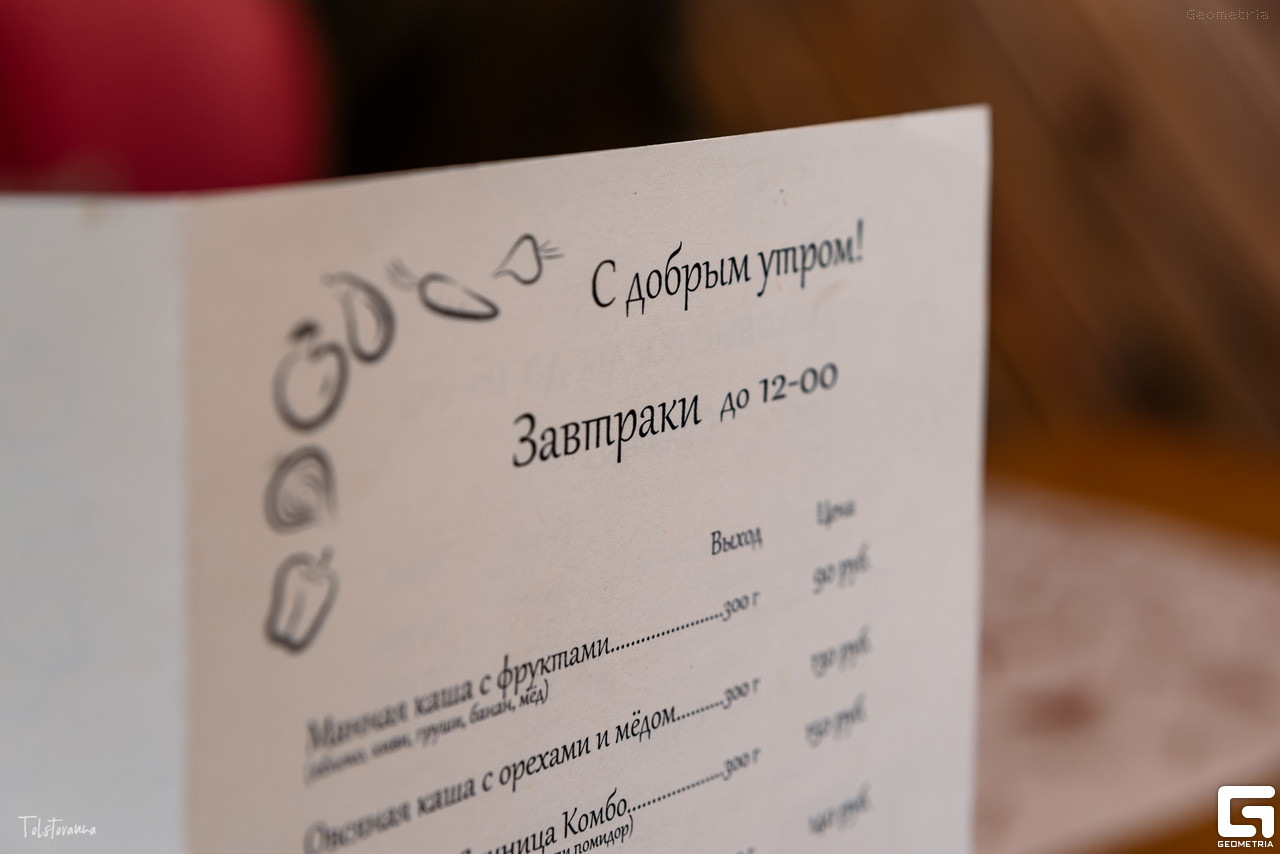 Geometria
С добрым утром!
Завтраки до 12-00
Выход Цена
Манная каша с фруктами....................300 г 90 руб.
(яблоко, киви, груши, банан, мёд)
Овсяная каша с орехами и мёдом..........300 г 130 руб.
Комбо....................300 г 150 руб.
помидор)
140 руб.
Tolstovanna
GEOMETRIA